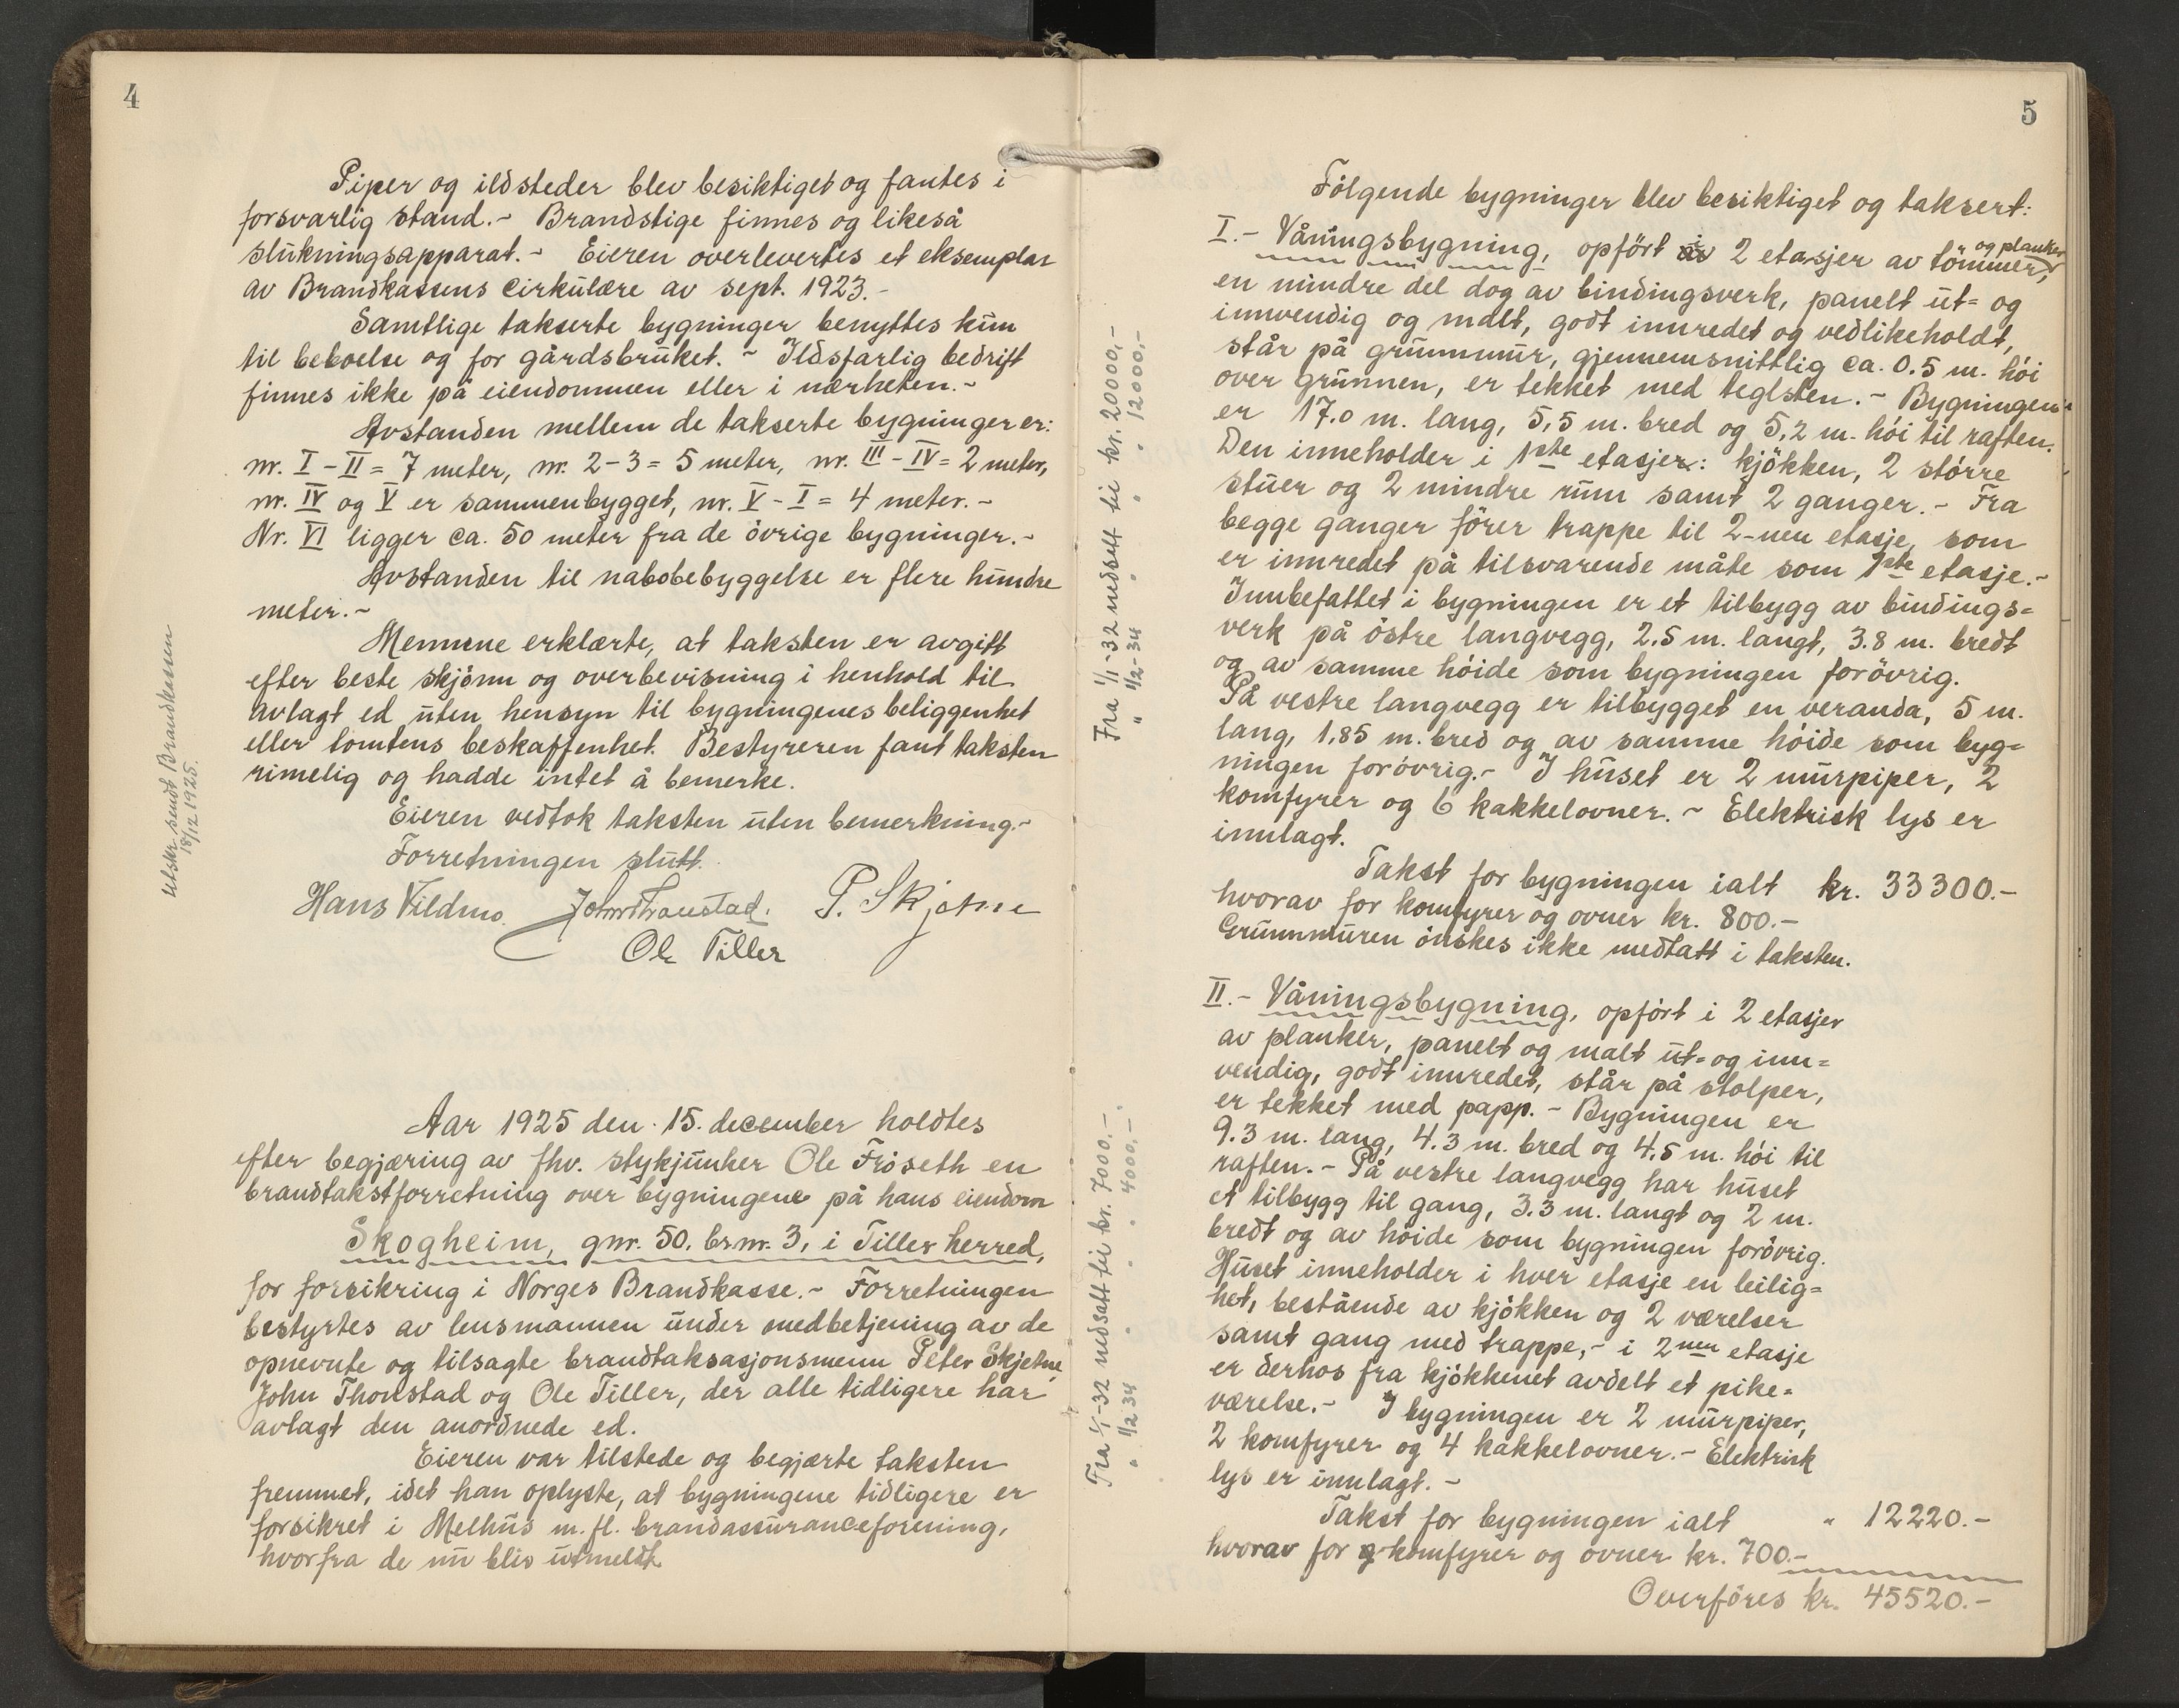 4
Piper og ildsteder blev besiktiget og fantes i
forsvarlig stand.- Brandstige finnes og likeså
slukningsapparat.- Eieren overlevertes et eksemplar
av Brandkassens cirkulære av sept. 1923.-
Samtlige takserte bygninger benyttes kun
til beboelse og for gårdsbruket.- Ildsfarlig bedrift
finnes ikke på eiendommen eller i nærheten.-
Avstanden mellem de takserte bygninger er:
nr. I - II = 7 meter, nr. 2-3 = 5 meter, nr. III - IV = 2 meter,
nr. IV og V er sammenbygget, nr. V - I = 4 meter.-
Nr. VI ligger ca. 50 meter fra de övrige bygninger.-
Avstanden til nabobebyggelse er flere hundre
meter.-
Mennene erklærte, at taksten er avgitt
efter beste skjönn og overbevisning i henhold til
avlagt ed uten hensyn til bygningenes beliggenhet
eller tomtens beskaffenhet. Bestyreren fant taksten
rimelig og hadde intet å bemerke.
Eieren vedtok taksten uten bemerkning.-
Forretningen slutt.
Hans Vildmo. John Thonstad. P. Skjetne
Ole Tiller
Utskr. sendt Brandkassen
18/12 1925.
Aar 1925 den 15. december holdtes
efter begjæring av fhv. stykjunker Ole Fröseth en
brandtakstforretning over bygningene på hans eiendom
Skogheim, gnr. 50. brnr. 3, i Tiller herred,
for forsikring i Norges Brandkasse.- Forretningen
bestyrtes av lensmannen under medbetjening av de
opnevnte og tilsagte brandtaksasjonsmenn Peter Skjetne,
John Thonstad og Ole Tiller, der alle tidligere har
avlagt den anordnede ed.
Eieren var tilstede og begjærte taksten
fremmet, idet han oplyste, at bygningene tidligere er
forsikret i Melhus m.fl. brandassuranceforening,
hvorfra de nu blir utmeldt.
5
Fölgende bygninger blev besiktiget og taksert:
I.- Våningsbygning, opfört i 2 etasjer av tömmer og planker,
en mindre del dog av bindingsverk, panelt ut= og
innvendig og malt, godt innredet og vedlikeholdt,
står på grunnmur, gjennemsnittlig ca. 0.5 m. höi
over grunnen, er tekket med teglsten.- Bygningen
er 17.0 m. lang, 5,5 m. bred og 5,2 m. höi til raften.
Den inneholder i 1ste etasjer: kjökken, 2 större
stuer og 2 mindre rum samt 2 ganger.- Fra
begge ganger förer trappe til 2-nen etasje, som
er innredet på tilsvarende måte som 1ste etasje.-
Innbefattet i bygningen er et tilbygg av bindings=
verk på östre langvegg, 2,5 m. langt, 3.8 m. bredt
og av samme höide som bygningen forövrig.
På vestre langvegg er tilbygget en veranda, 5 m.
lang, 1,85 m. bred og av samme höide som byg=
ningen forövrig.- I huset er 2 murpiper, 2
komfyrer og 6 kakkelovner.- Elektrisk lys er
innlagt.
Takst for bygningen ialt kr. 33300.-
hvorav for komfyrer og ovner kr. 800.-
Grunnmuren önskes ikke medtatt i taksten.
Fra 1/1-32 nedsatt til kr. 20000,-
" 1/2-34 " " " 12000,-
II.- Våningsbygning, opfört i 2 etasjer
av planker, panelt og malt ut= og inn=
vendig, godt innredet, står på stolper,
er tekket med papp.- Bygningen er
9.3 m. lang, 4.3 m. bred og 4,5 m. höi til
raften.- På vestre langvegg har huset
et tilbygg til gang, 3.3 m. langt og 2 m.
bredt og av höide som bygningen forövrig.
Huset inneholder i hver etasje en leilig=
het, bestående av kjökken og 2 værelser
samt gang med trappe,- i 2nen etasje
er derhos fra kjökkenet avdelt et pike=
værelse.- I bygningen er 2 murpiper,
2 komfyrer og 4 kakkelovner.- Elektrisk
lys er innlagt.-
Takst for bygningen ialt " 12220.-
hvorav for komfyrer og ovner kr. 700.-
Overföres kr. 45520.-
Fra 1/1-32 nedsatt til kr. 7000.-
" 1/2 34 " " " 4000.-